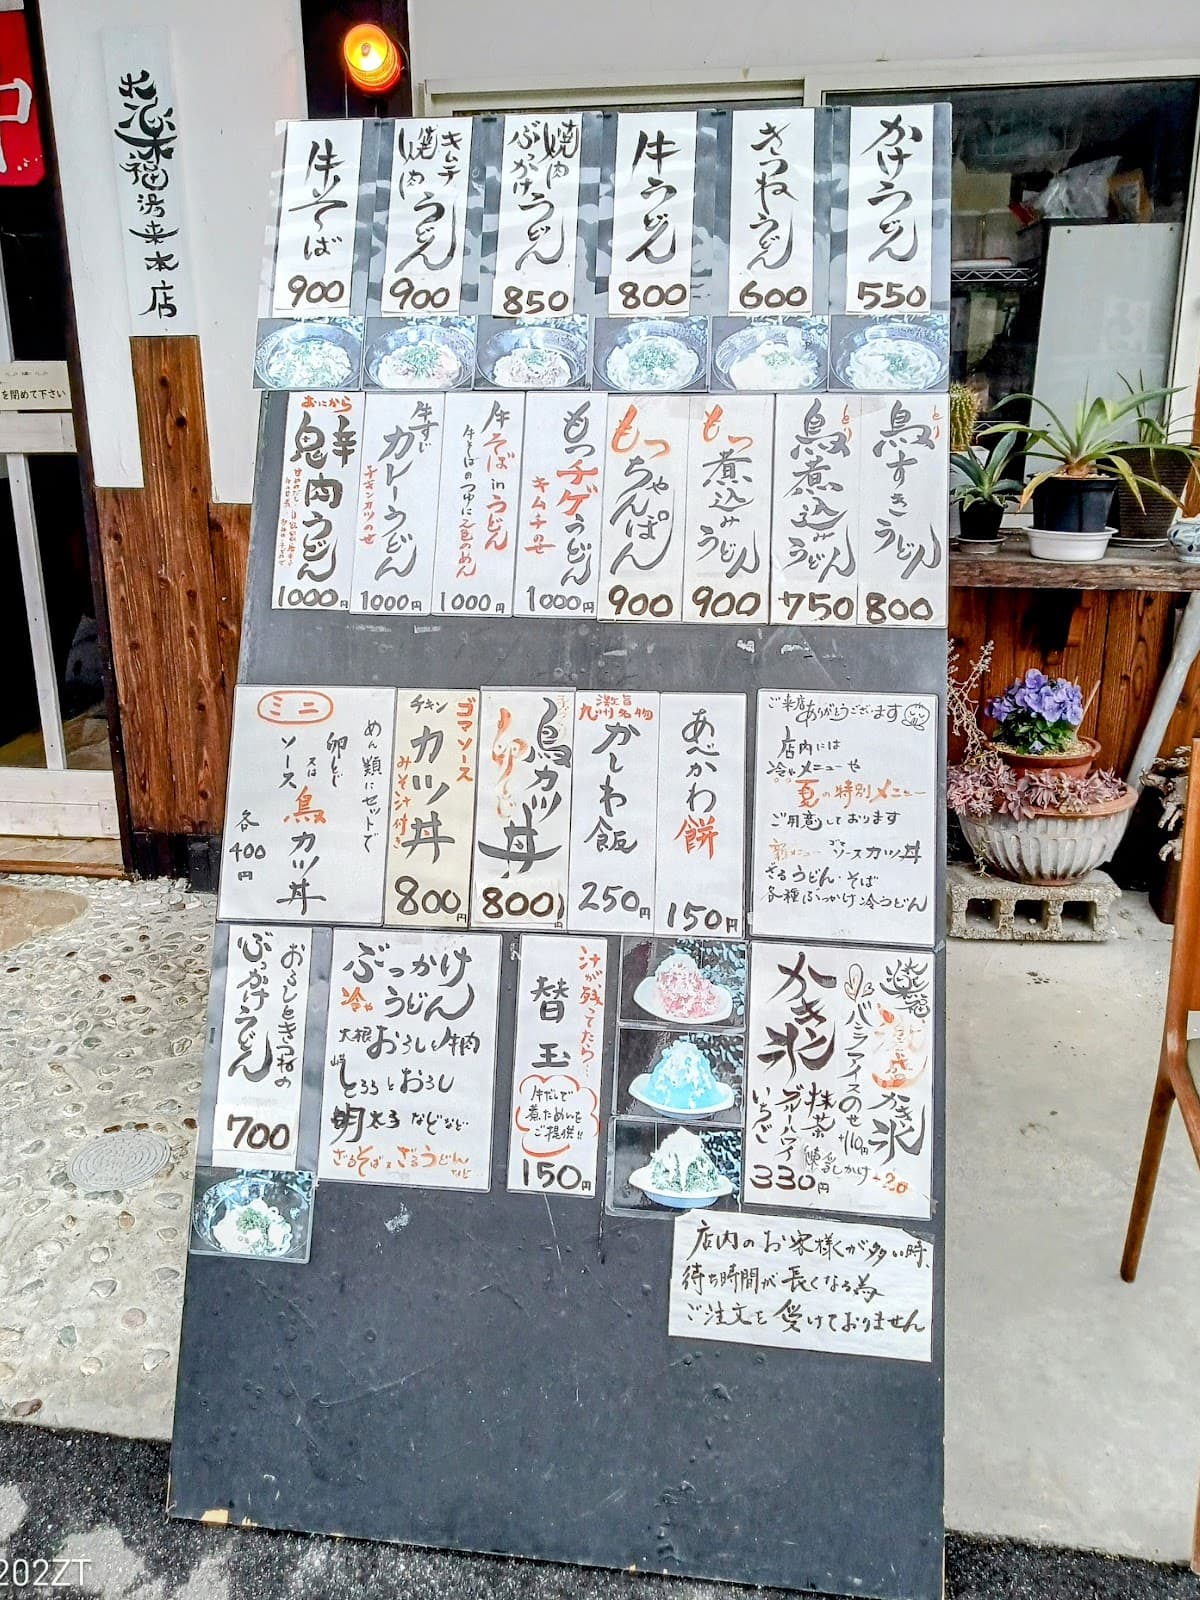 福
来
本
店
を閉めて下さい
かけうどん
550
きつねうどん
600
牛うどん
800
焼肉
ぶっかけうどん
850
キムチ
焼肉うどん
900
牛そば
900
とり
鳥すきうどん
800
とり
鳥煮込みうどん
750
もつ煮込みうどん
900
もつちゃんぽん
900
もつチゲうどん
キムチのせ
1000円
牛そばinうどん
牛そばのつゆに2色のめん
1000円
牛すじ
カレーうどん
チキンカツのせ
1000円
おにから
鬼辛肉うどん
1000円
ご来店
ありがとうございます
店内には
冷やメニューや
夏の特別メニュー
ご用意しております
新メニュー ゴマソースカツ丼
ざるうどん・そば
各種ぶっかけ冷うどん
あべかわ餅
150円
九州名物
かしわ飯
250円
鳥カツ丼
卵とじ
800円
ゴマソース
チキン
カツ丼
みそ汁付き
800円
ミニ
めん類にセットで
卵とじ
又は
ソース鳥カツ丼
各400円
かき氷
バニラアイスのせ
かき氷
抹茶
ブルーハワイ
いちご
330円
汁が残ってたら…
替玉
牛だしで
煮ためんを
ご提供!!
150円
ぶっかけ
冷やうどん
大根おろしと牛肉
とろろとおろし
明太子などなど
ざるそば ざるうどん
など
おろしときつねの
ぶっかけうどん
700
店内のお客様が多い時、
待ち時間が長くなる為
ご注文を受けておりません
202ZT